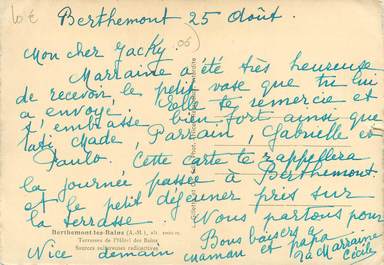 10 €
Berthemont 25 Août.
(06)
Mon cher Jacky
Marraine a été très heureuse
de recevoir le petit vase que tu lui
a envoyé. Elle te remercie et
t'embrasse bien fort ainsi que
tati, Made, Parrain, Gabrielle et
Paulo. Cette carte te rappellera
la journée passée à Berthemont
et le petit déjeuner pris sur
la terrasse. Nous partons pour
Nice demain
Bons baisers à
maman et papa
Ta Marraine
Cécile
Berthemont-les-Bains (A.-M.), alt.
Terrasses de l'Hôtel des Bains
Sources sulfureuses radioactives